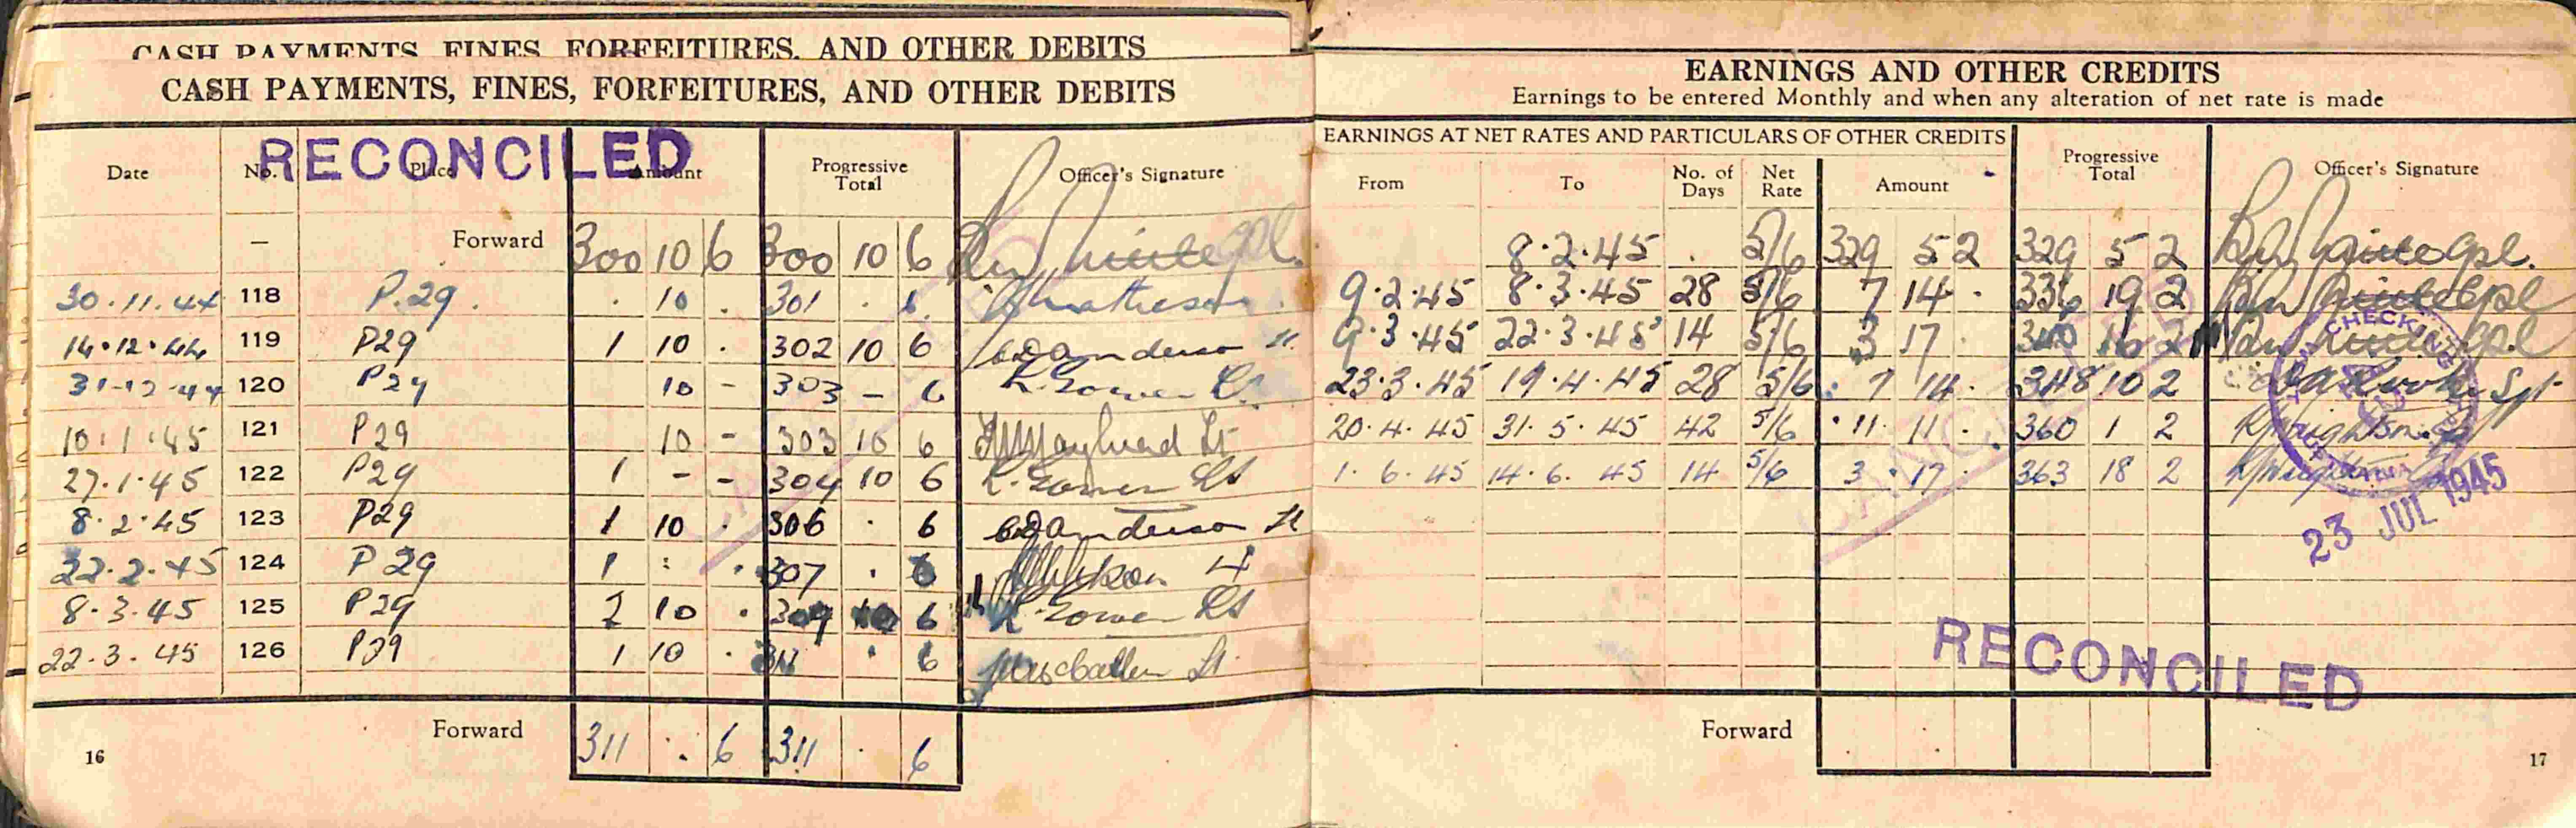 CASH PAYMENTS, FINES, FORFEITURES, AND OTHER DEBITS
CASH PAYMENTS, FINES, FORFEITURES, AND OTHER DEBITS
RECONCILED
Date No. Place Amount Progressive Total Officer's Signature
— Forward 300 10 6 300 10 6 Cpl.
30.11.44 118 P.29. . 10 . 301 . 6 Matheson
14.12.44 119 P29 1 10 . 302 10 6 Anderson Lt
31-12-44 120 P29 10 - 303 - 6 Gower Lt.
10.1.45 121 P29 10 - 303 10 6 Lt
27.1.45 122 P29 1 - - 304 10 6 Gower Lt
8.2.45 123 P29 1 10 . 306 . 6 Anderson Lt
22.2.45 124 P29 1 : . 307 . 6 Lt
8.3.45 125 P29 2 10 . 309 10 6 Gower Lt
22.3.45 126 P29 1 10 . 311 . 6 Lt
Forward 311 . 6 311 . 6
16
EARNINGS AND OTHER CREDITS
Earnings to be entered Monthly and when any alteration of net rate is made
EARNINGS AT NET RATES AND PARTICULARS OF OTHER CREDITS
From To No. of Days Net Rate Amount Progressive Total Officer's Signature
8.2.45 . 5/6 329 5 2 329 5 2 Cpl.
9.2.45 8.3.45 28 5/6 7 14 . 336 19 2 Cpl
9.3.45 22.3.45 14 5/6 3 17 340 16 2 Cpl
23.3.45 19.4.45 28 5/6 7 14 . 348 10 2 Sgt
20.4.45 31.5.45 42 5/6 11 11 . 360 1 2
1.6.45 14.6.45 14 5/6 3 17 . 363 18 2
23 JUL 1945
RECONCILED
Forward
17